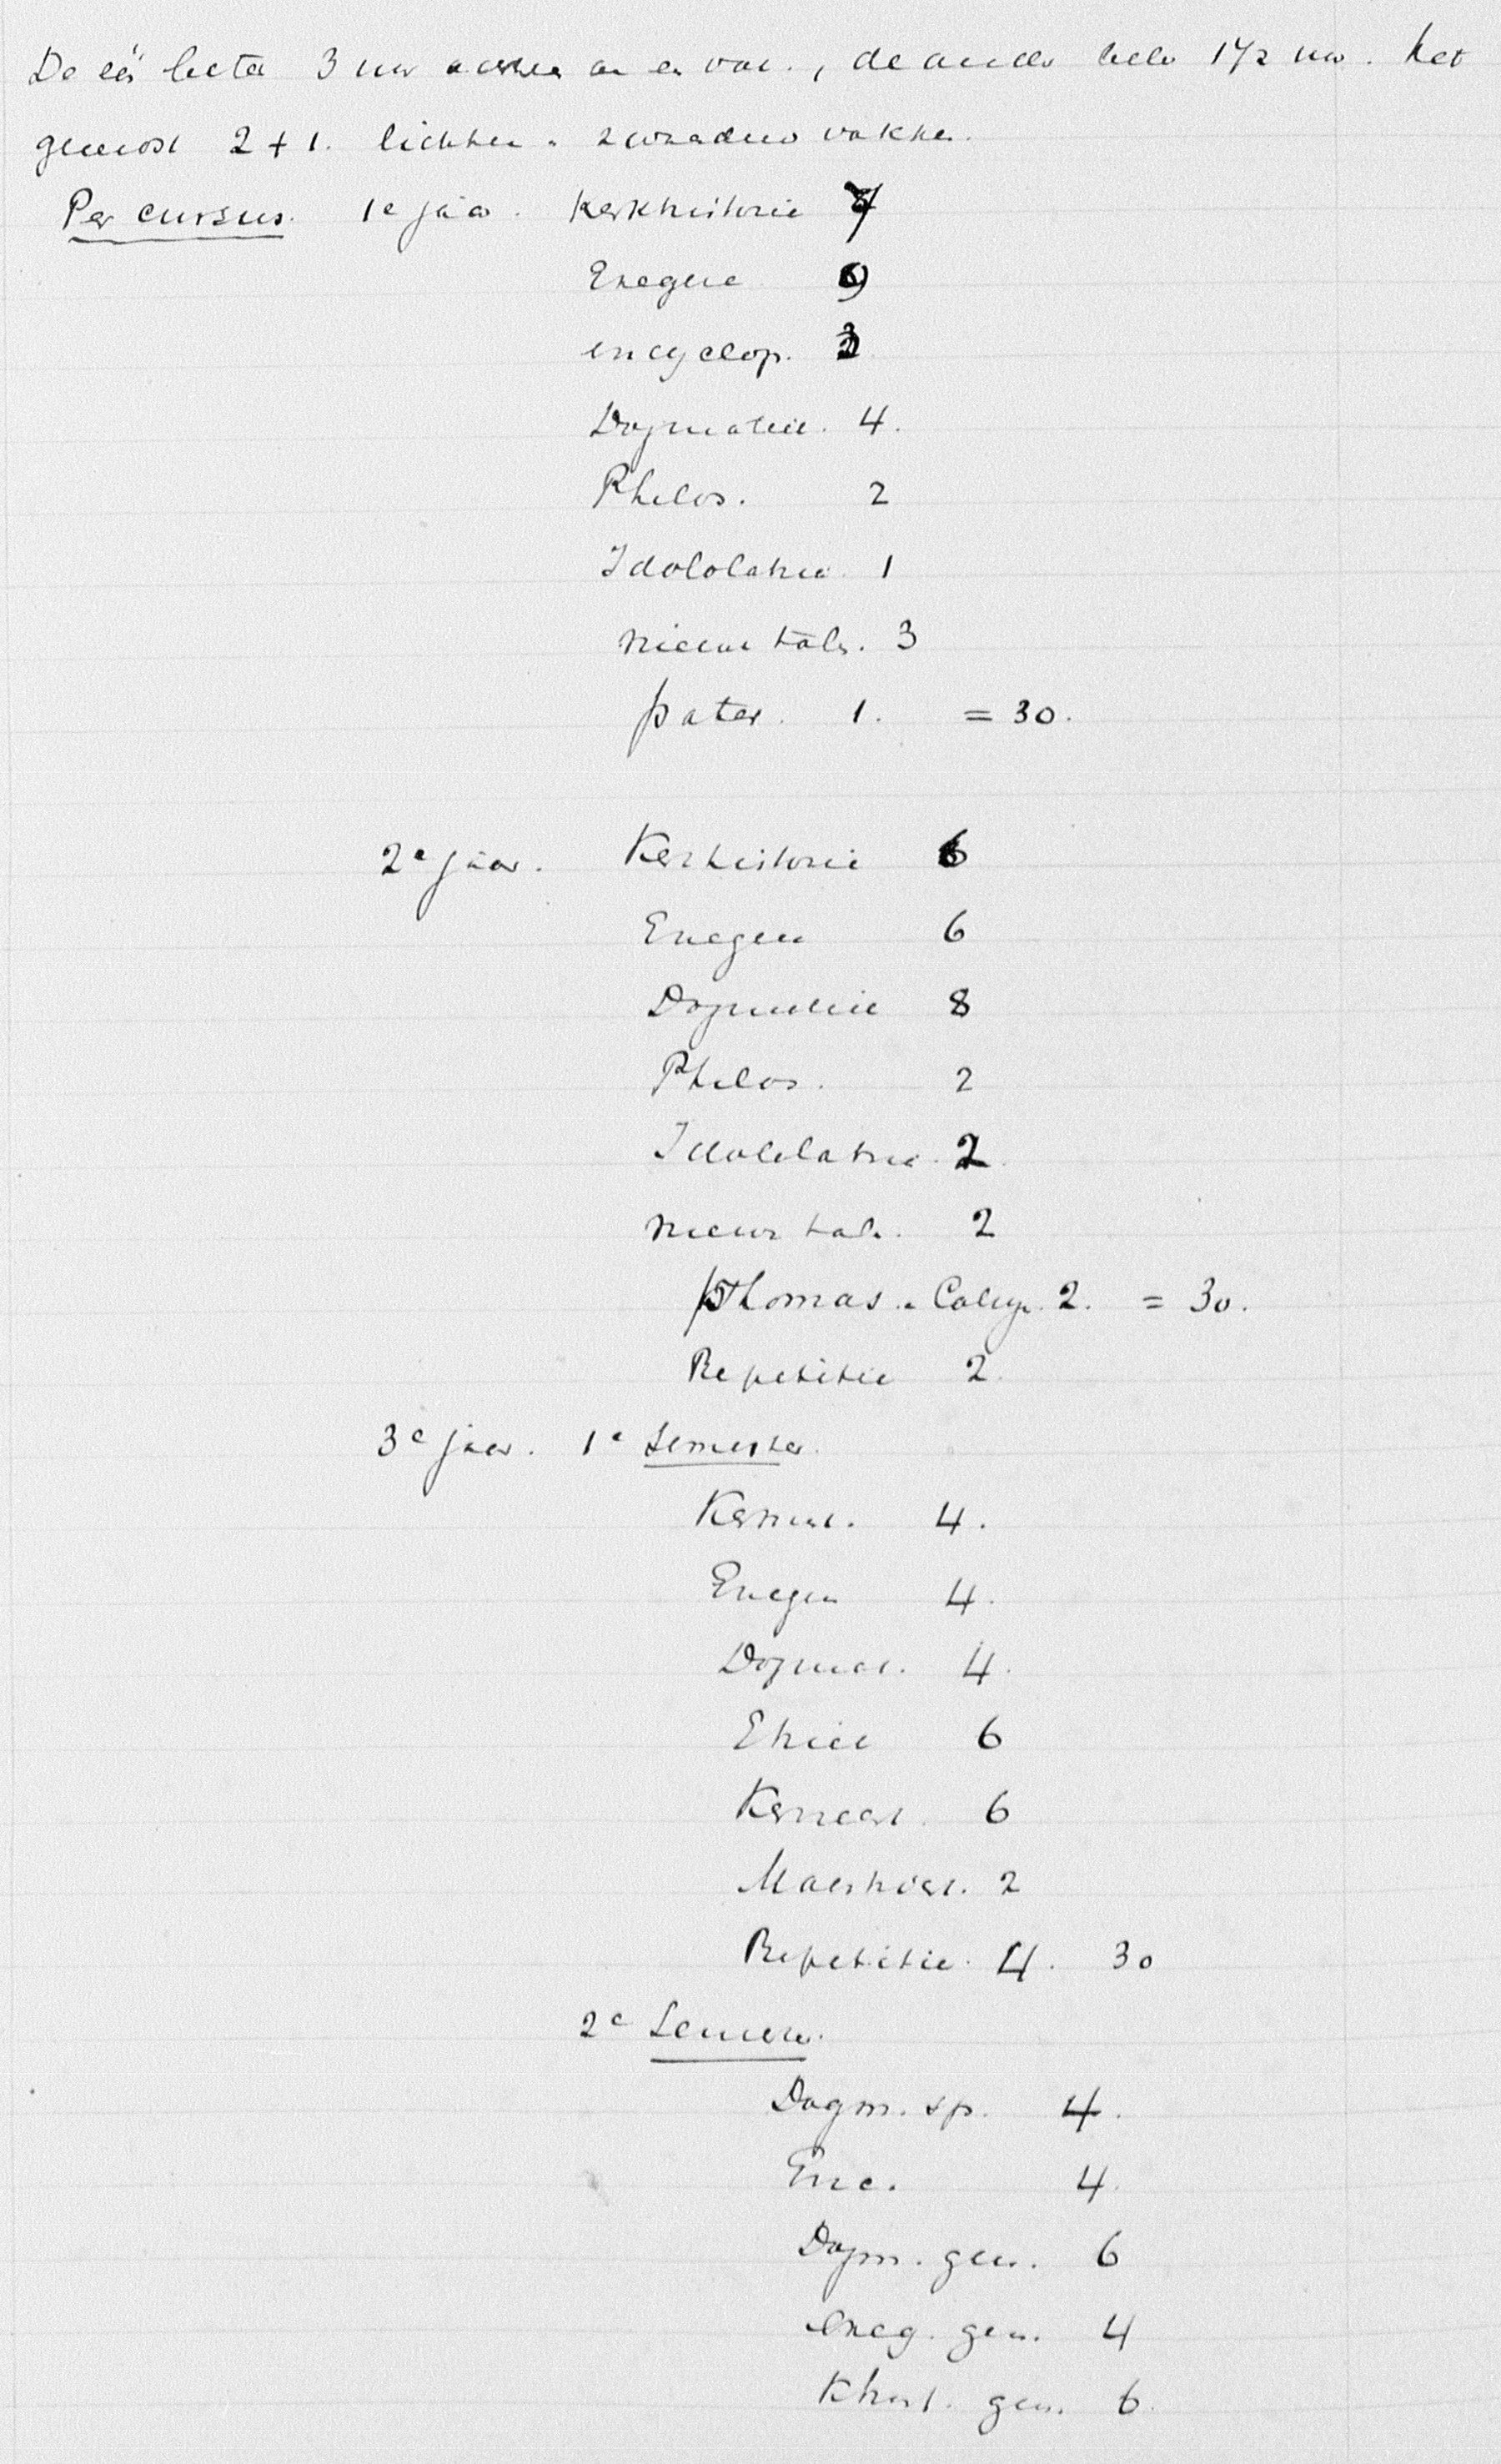 De één lector 3 uur achter an en vac., de ander beide 1 1/2 uur. Het
2 + 1. lichter - zwaardere vakken.
Per cursus. 1e jaar. Kerkhistorie 7
Exegese 9
encyclop. 3
Dogmatiek. 4.
Philos. 2
Idololatrie. 1
nieuw tāls. 3
pater. 1. = 30.
2e jaar. Kerkhistorie 6
Exegese 6
Dogmatiek 8
Philos. 2
Idololatrie. 2
nieuw tal. 2
Thomas. - Colleg. 2. = 30.
Repetitie 2.
3e jaar. 1e Semester.
Kerkhist. 4.
Exegese 4.
Dogmat. 4.
Ethiek 6
Kerkrecht. 6
Maatschap. 2
Repetitie. 4. 30
2e Semester.
Dogm. sp. 4.
Exe. 4.
Dogm. gen. 6
exeg. gen. 4
Khist. gen. 6.